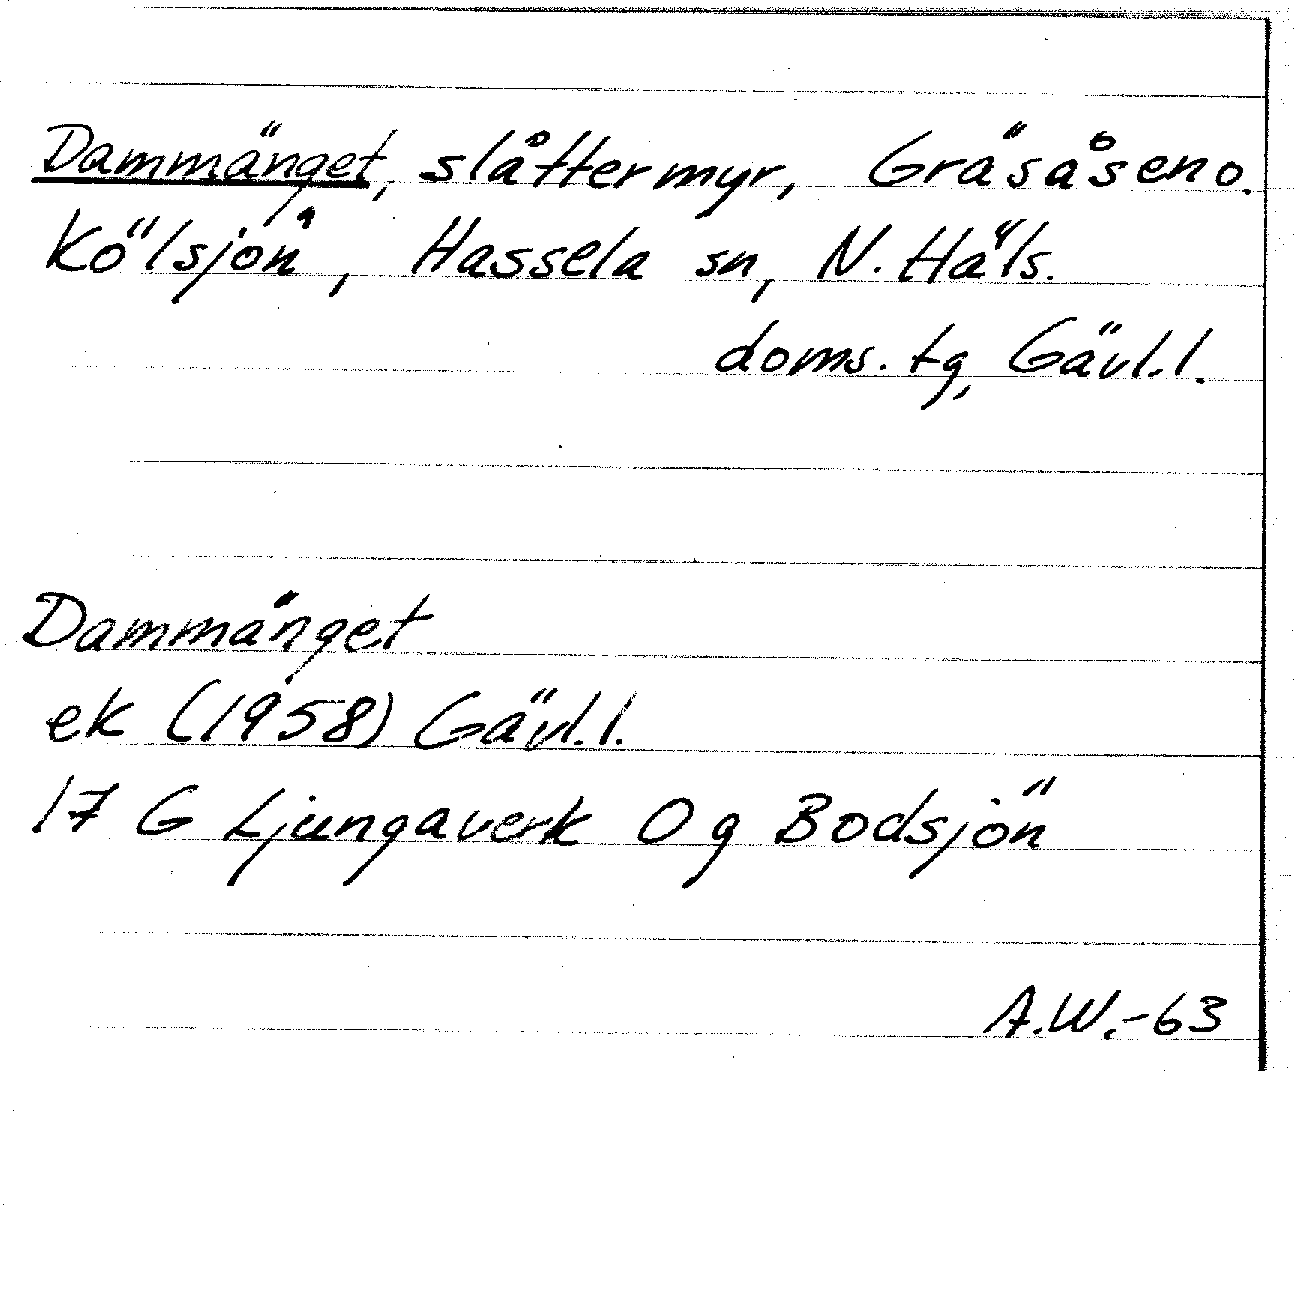 Dammänget, slåttermyr, Gräsåsen o.
Kölsjön, Hassela sn, N. Häls.
doms. tg, Gävl.l.
Dammänget
ek (1958) Gävl.l.
17 G Ljungaverk O g Bodsjön
A.W.-63